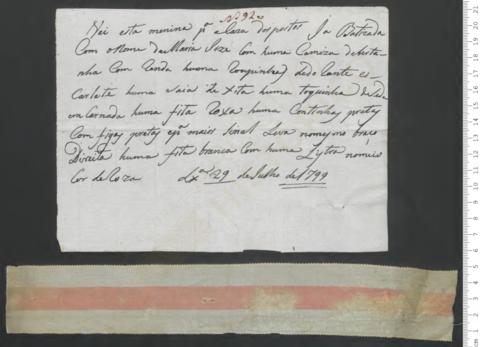 Nº 920
Vai esta menina pª a Caza dos postos Ja Batizada
Com o Nome de Maria Joze Com huma Camiza de Breta
nha Com Renda huma Roupinha de durante es
Carlate huma Saia de xita huma touquinha de seda
en Carnada huma fita Roxa huma Continhas pretas
Com figas pretas e pª maior Sinal Leva no meyo no braço
Direito huma fita branca Com huma Lystra no meio
Cor de Roza Lxª 29 de Julho de 1799